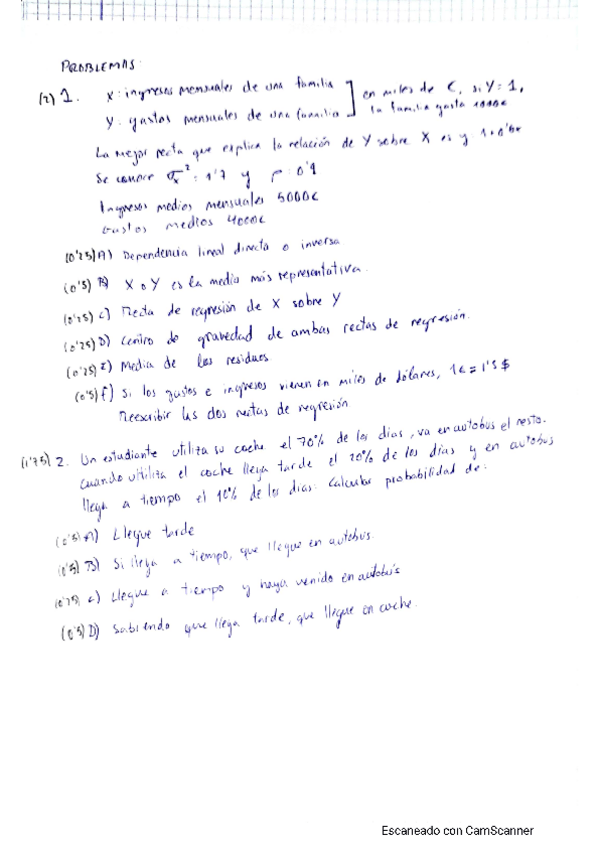 PROBLEMAS:
(2) 1. X: ingresos mensuales de una familia ] en miles de €, si Y=1,
Y: gastos mensuales de una familia la familia gasta 1000€
La mejor recta que explica la relación de Y sobre X es y
Se conoce σx² = 1'7 y ρ = 0'9
Ingresos medios mensuales 5000€
Gastos medios 4000€
(0'25) A) Dependencia lineal directa o inversa
(0'5) B) X o Y es la media más representativa.
(0'25) C) Recta de regresión de X sobre Y
(0'25) D) Centro de gravedad de ambas rectas de regresión.
(0'25) E) Media de los residuos
(0'5) f) Si los gastos e ingresos vienen en miles de dólares, 1€ = 1'5 $
Reescribir las dos rectas de regresión
(1'75) 2. Un estudiante utiliza su coche el 70% de los días, va en autobus el resto.
cuando utiliza el coche llega tarde el 20% de los días y en autobus
llega a tiempo el 10% de los días. Calcular probabilidad de:
(0'5) A) Llegue tarde
(0'5) B) Si llega a tiempo, que llegue en autobus.
C) Llegue a tiempo y haya venido en autobús
(0'5) D) Sabiendo que llega tarde, que llegue en coche.
Escaneado con CamScanner